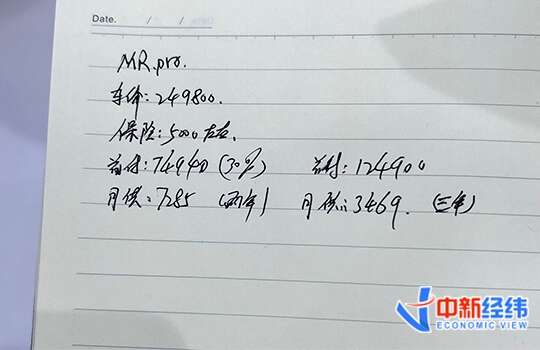 Date.
MR.pro.
车价:249800.
保险:5000左右.
首付:74940(30%) 首付:124900
月供:7285 (两年) 月供:3469. (三年)
中新经纬
ECONOMIC VIEW